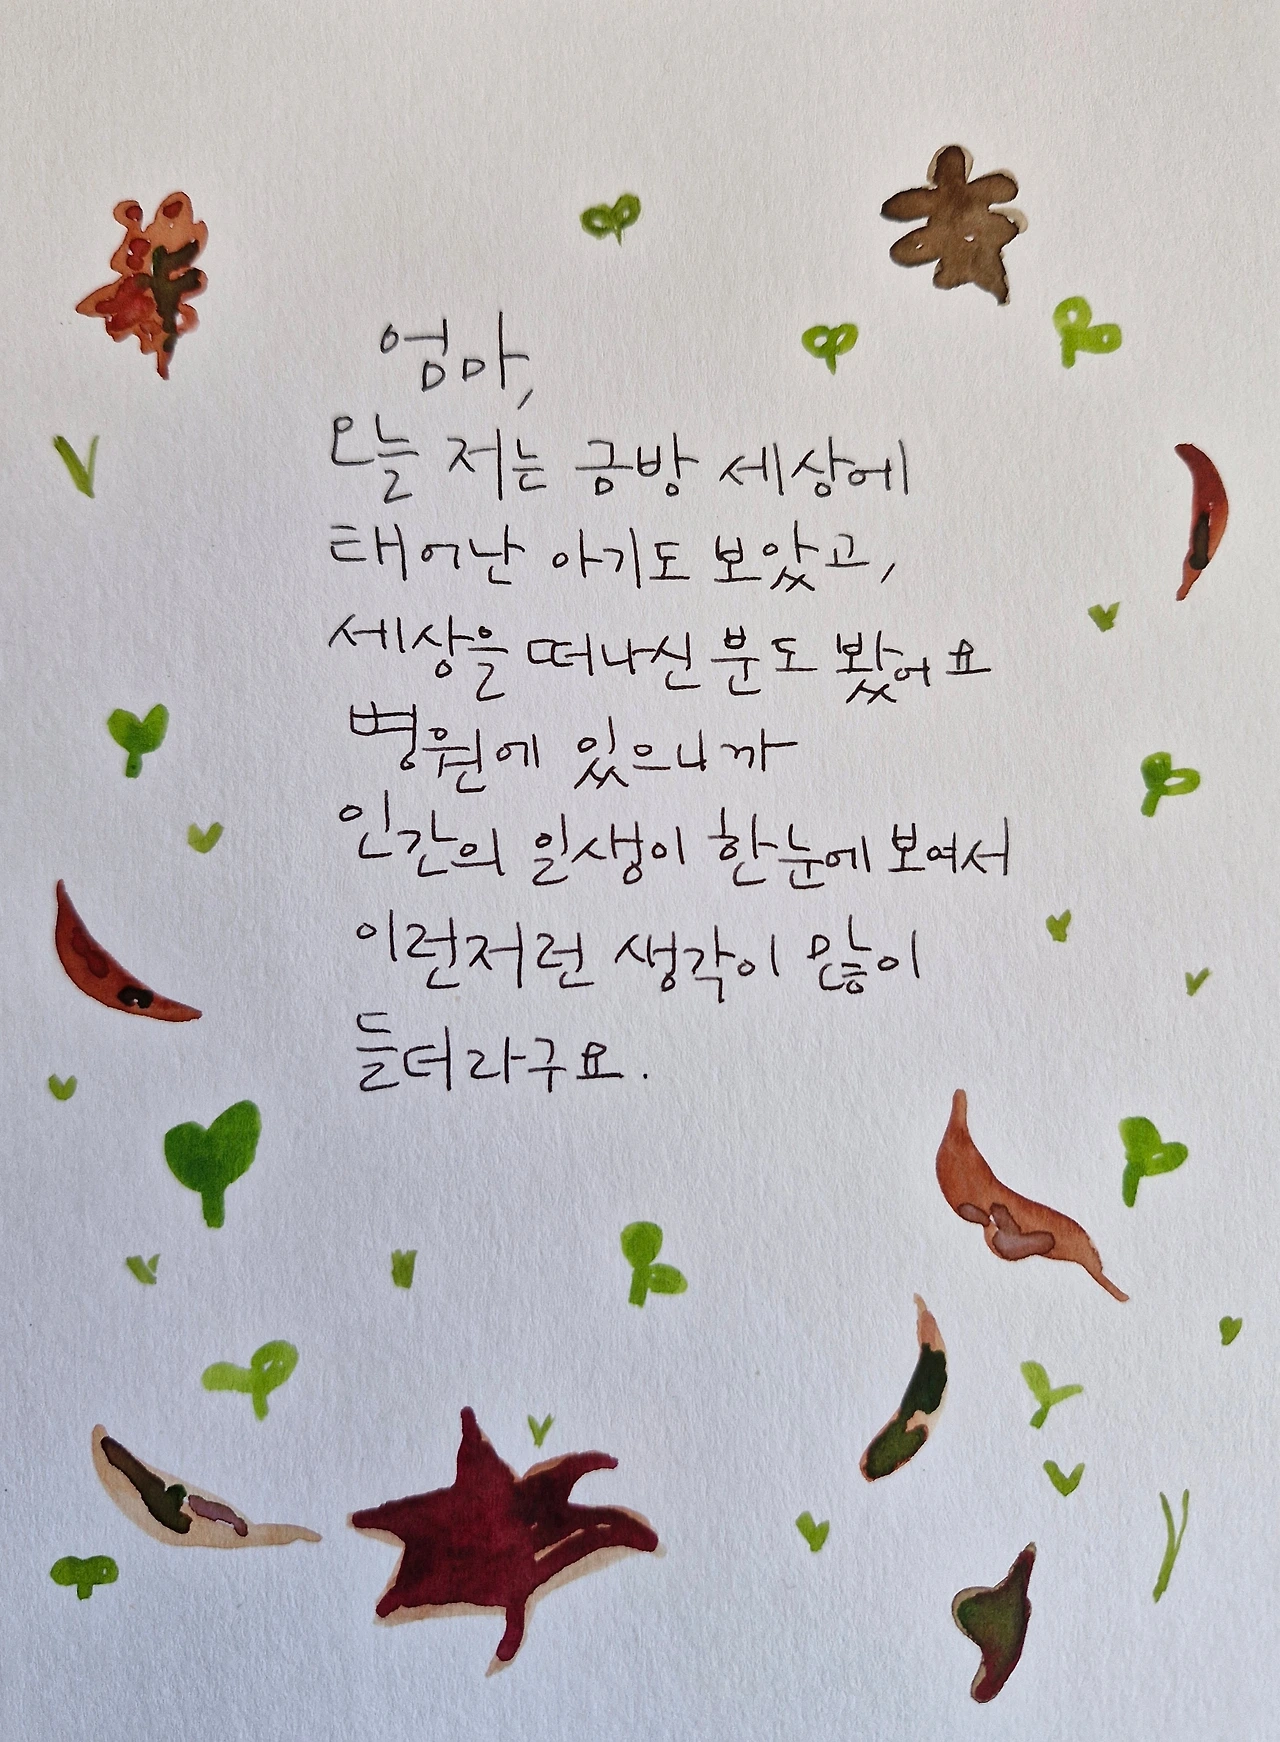 엄마,
오늘 저는 금방 세상에
태어난 아기도 보았고,
세상을 떠나신 분도 봤어요
병원에 있으니까
인간의 일생이 한눈에 보여서
이런저런 생각이 많이
들더라구요.